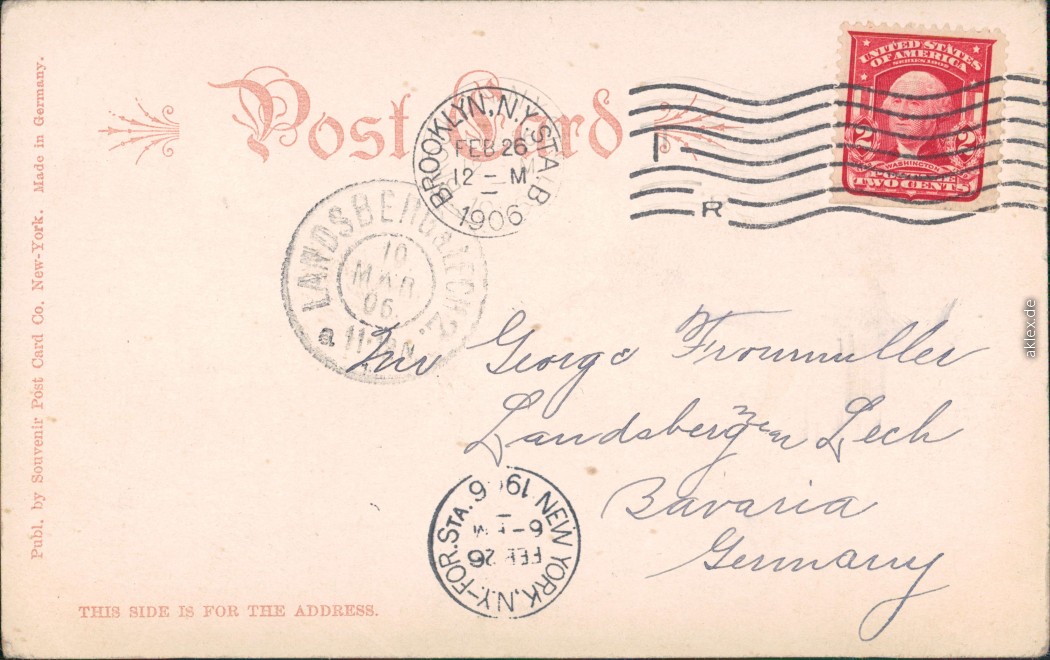 Post Card
UNITED STATES
OF AMERICA
SERIES 1902
2 2
WASHINGTON
TWO CENTS
BROOKLYN, N.Y. STA. B
FEB 26
12 - M
1906
R
LANDSBERG
10
MAR.
06.
George Frommuller
Landsberg am Lech
Bavaria
Germany
NEW YORK, N.Y.-FOR. STA.
FEB 26
6 -
THIS SIDE IS FOR THE ADDRESS.
Publ. by Souvenir Post Card Co. New-York. Made in Germany.
aklex.de